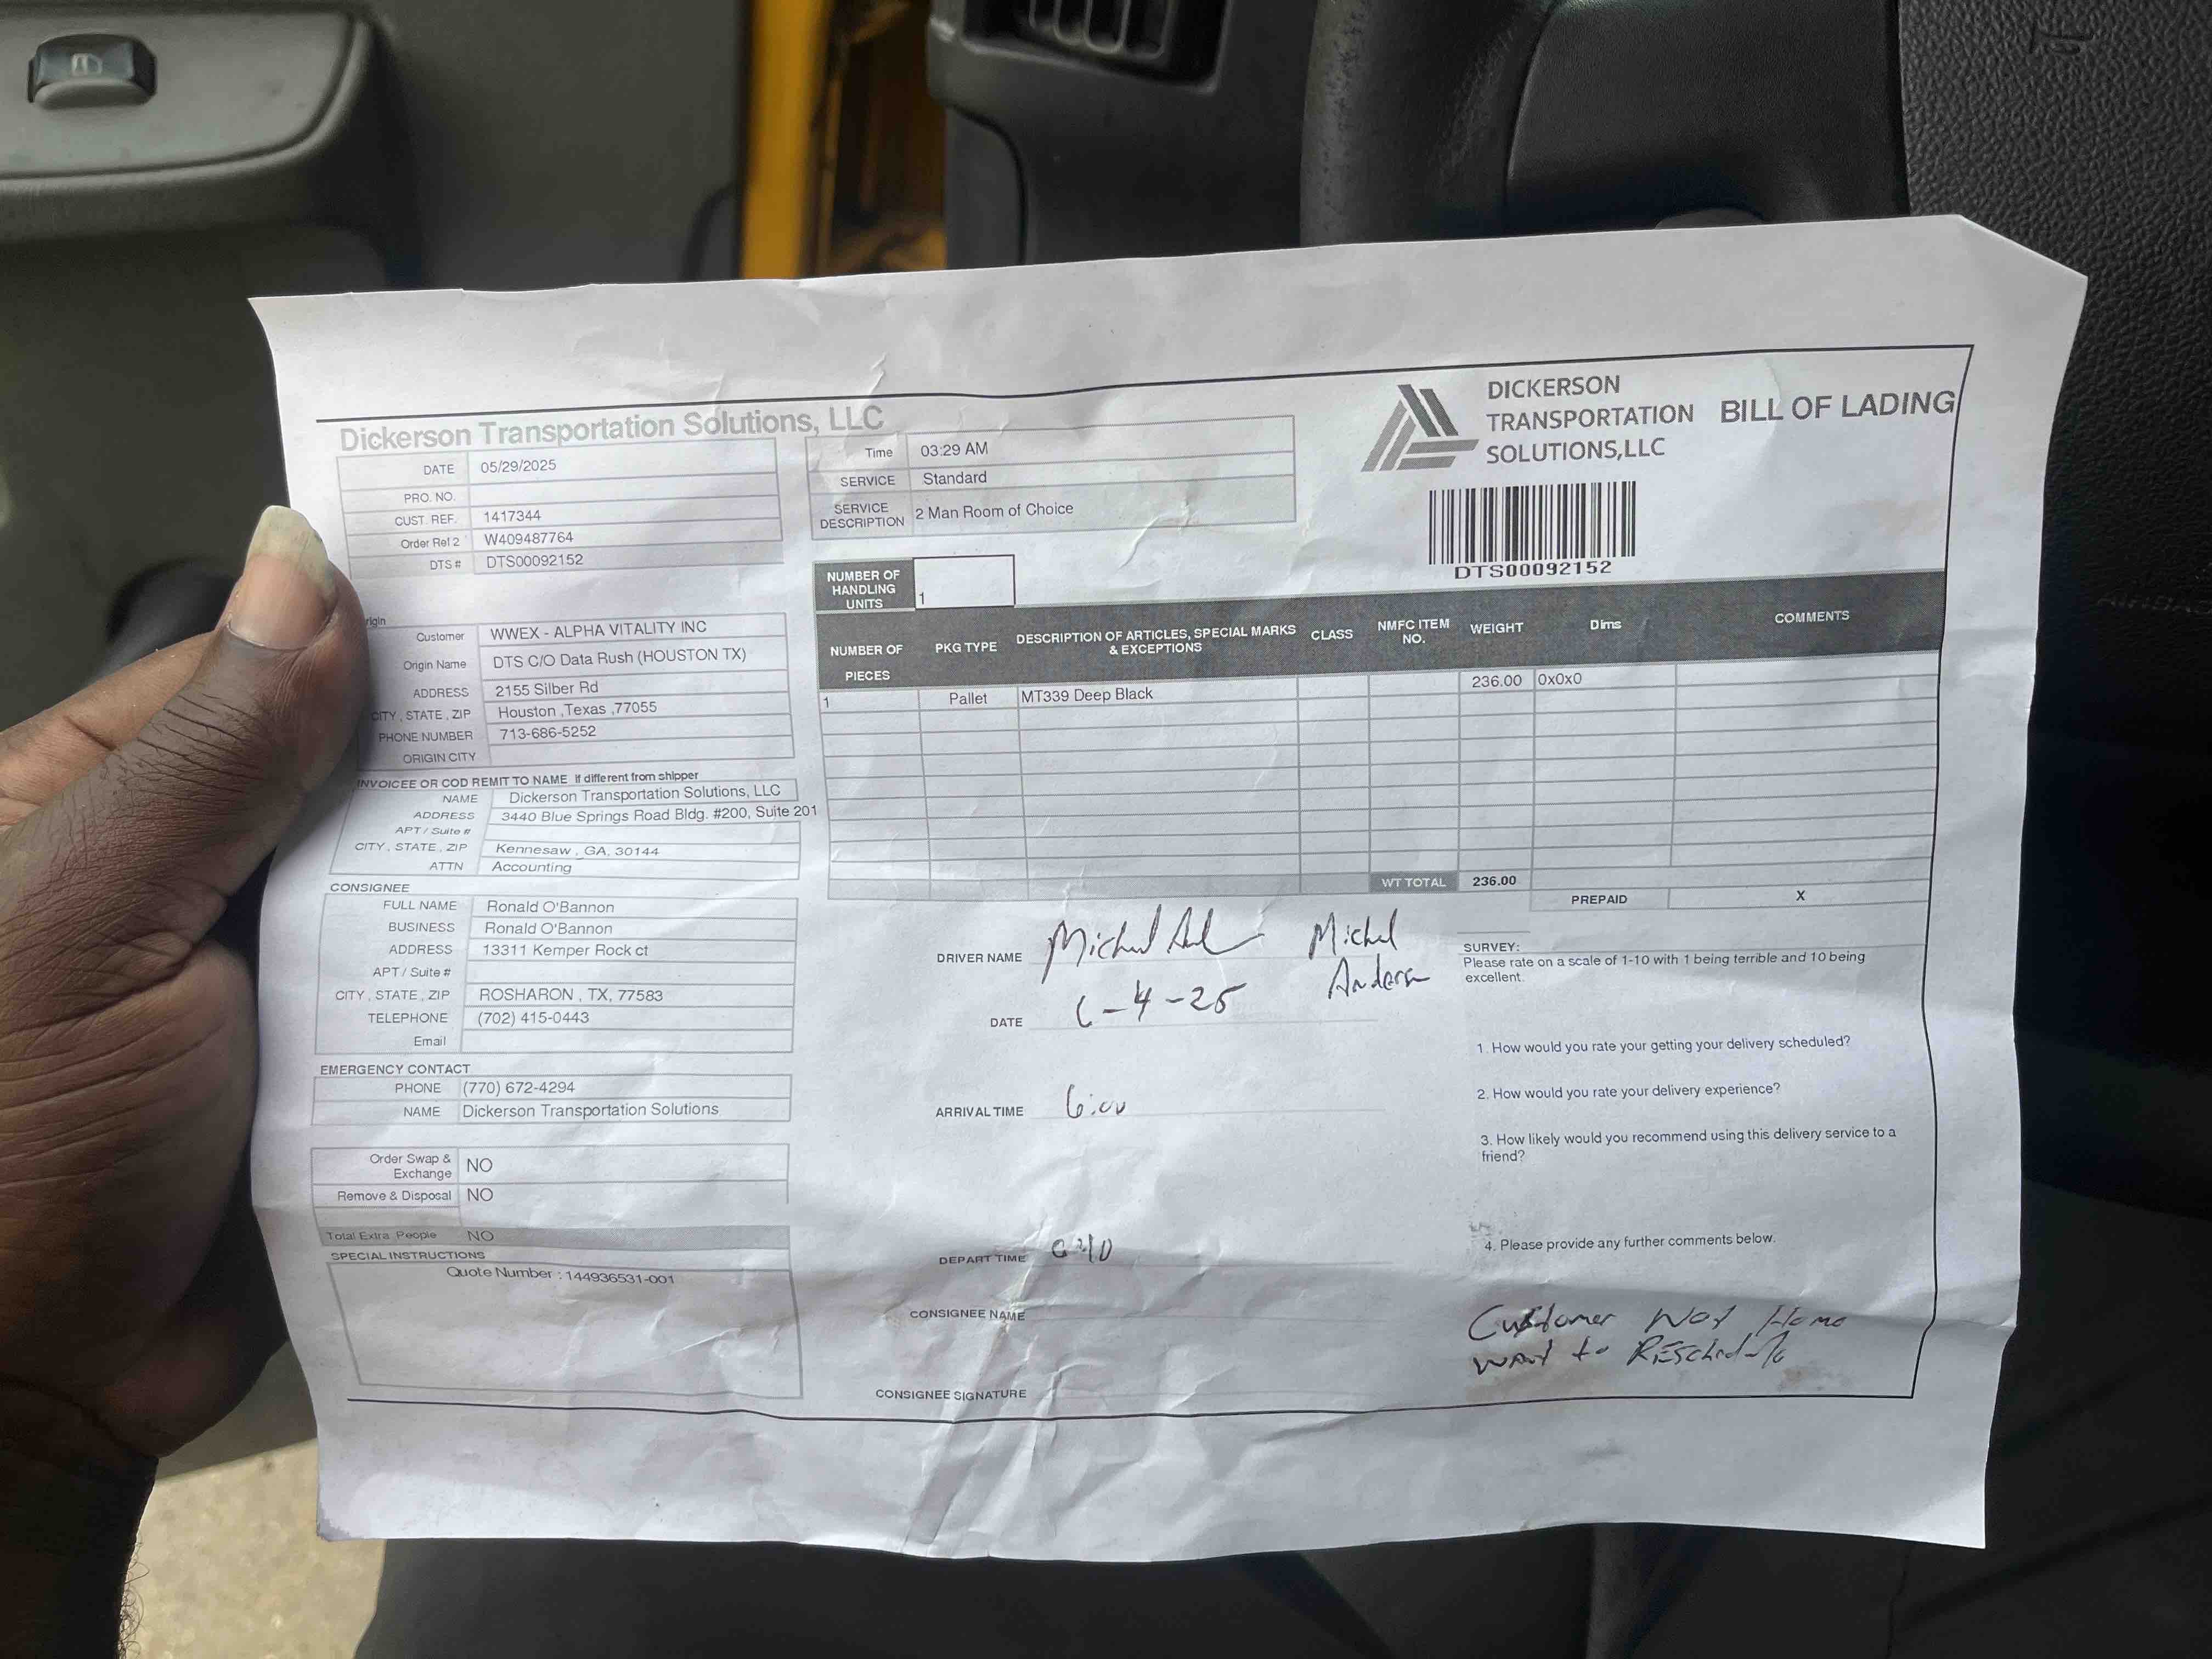 Dickerson Transportation Solutions, LLC
DATE 05/29/2025
PRO. NO.
CUST. REF. 1417344
Order Ref 2 W409487764
DTS # DTS00092152
Time 03:29 AM
SERVICE Standard
SERVICE DESCRIPTION 2 Man Room of Choice
DICKERSON
TRANSPORTATION
SOLUTIONS,LLC
BILL OF LADING
DTS00092152
Customer WWEX - ALPHA VITALITY INC
Origin Name DTS C/O Data Rush (HOUSTON TX)
ADDRESS 2155 Silber Rd
CITY , STATE , ZIP Houston ,Texas ,77055
PHONE NUMBER 713-686-5252
ORIGIN CITY
INVOICEE OR COD REMIT TO NAME if different from shipper
NAME Dickerson Transportation Solutions, LLC
ADDRESS 3440 Blue Springs Road Bldg. #200, Suite 201
APT / Suite #
CITY , STATE , ZIP Kennesaw , GA, 30144
ATTN Accounting
CONSIGNEE
FULL NAME Ronald O'Bannon
BUSINESS Ronald O'Bannon
ADDRESS 13311 Kemper Rock ct
APT / Suite #
CITY , STATE , ZIP ROSHARON , TX, 77583
TELEPHONE (702) 415-0443
Email
EMERGENCY CONTACT
PHONE (770) 672-4294
NAME Dickerson Transportation Solutions
Order Swap & Exchange NO
Remove & Disposal NO
Total Extra People NO
SPECIAL INSTRUCTIONS
Quote Number : 144936531-001
NUMBER OF HANDLING UNITS 1
NUMBER OF PIECES PKG TYPE DESCRIPTION OF ARTICLES, SPECIAL MARKS & EXCEPTIONS CLASS NMFC ITEM NO. WEIGHT Dims COMMENTS
1 Pallet MT339 Deep Black 236.00 0x0x0
WT TOTAL 236.00
PREPAID X
DRIVER NAME Michel
DATE 6-4-25
ARRIVAL TIME 6:00
DEPART TIME
CONSIGNEE NAME
CONSIGNEE SIGNATURE
SURVEY:
Please rate on a scale of 1-10 with 1 being terrible and 10 being
excellent.
1. How would you rate your getting your delivery scheduled?
2. How would you rate your delivery experience?
3. How likely would you recommend using this delivery service to a
friend?
4. Please provide any further comments below.
Customer Not Home
Want to